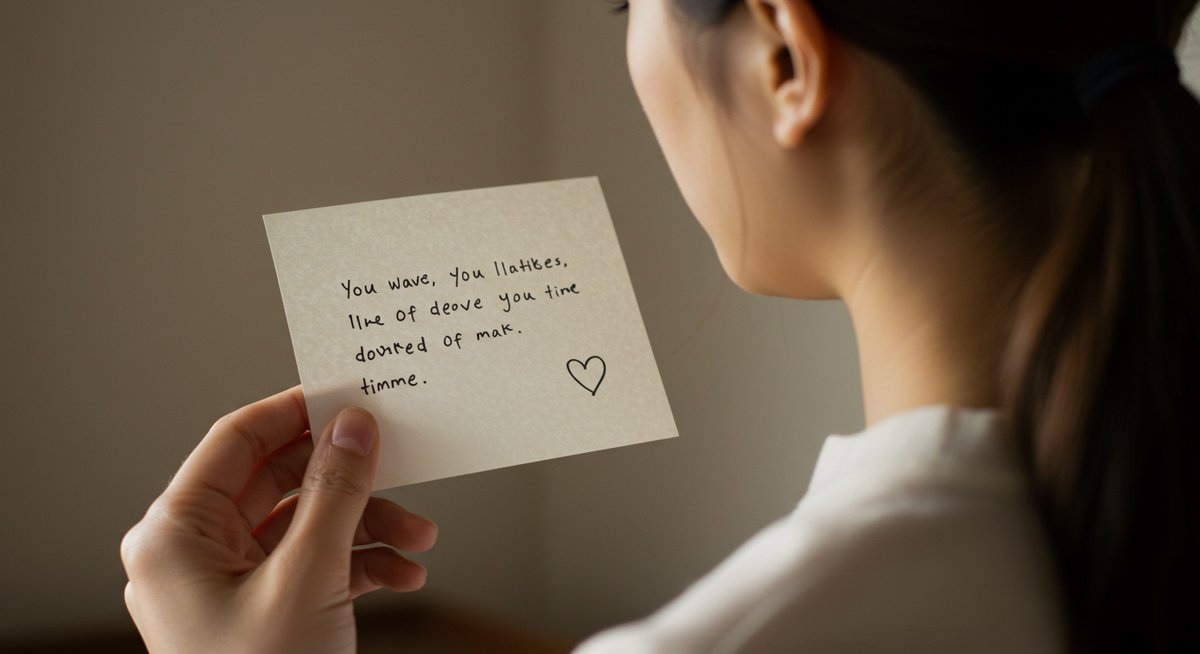 You wave, you llatibes,
line of deove you tine
dovred of mak.
timme.